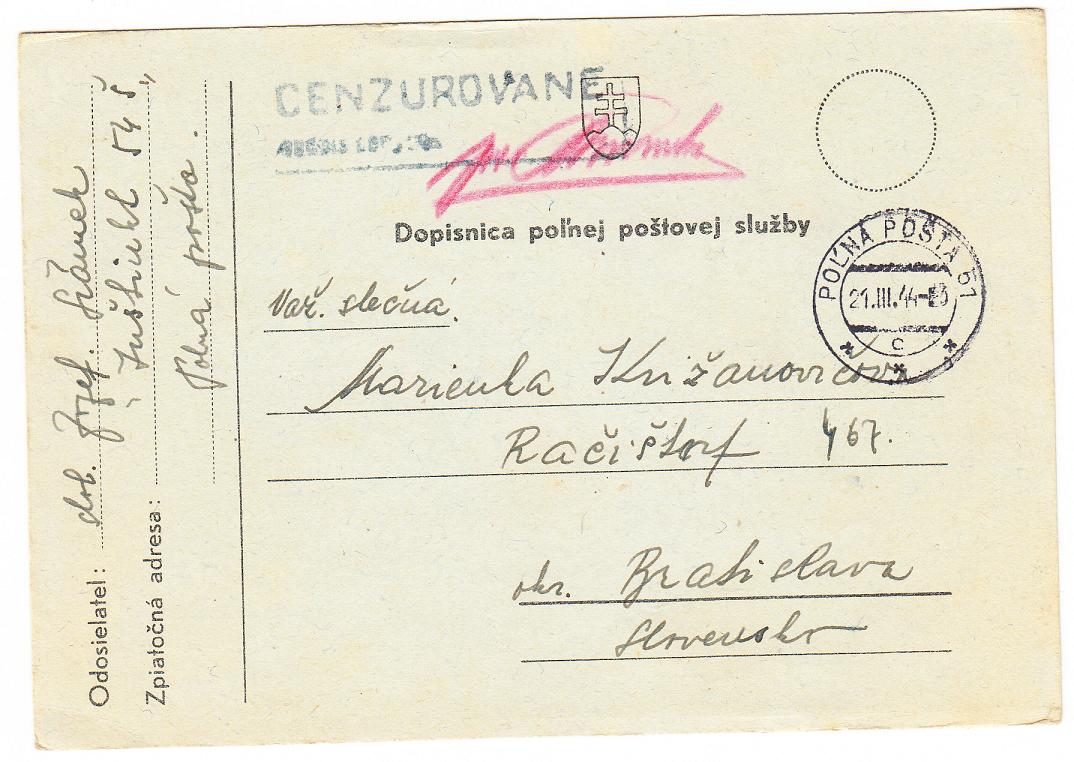 CENZUROVANÉ
Dopisnica poľnej poštovej služby
POĽNÁ POŠTA 51
21.III.44-13
c
Važ. slečná.
Marienka Križanovičova
Račištorf 467.
okr. Bratislava
Slovensko
Odosielateľ: dob. Jozef.
Zpiatočná adresa: 54 Š"
Polná pošta.